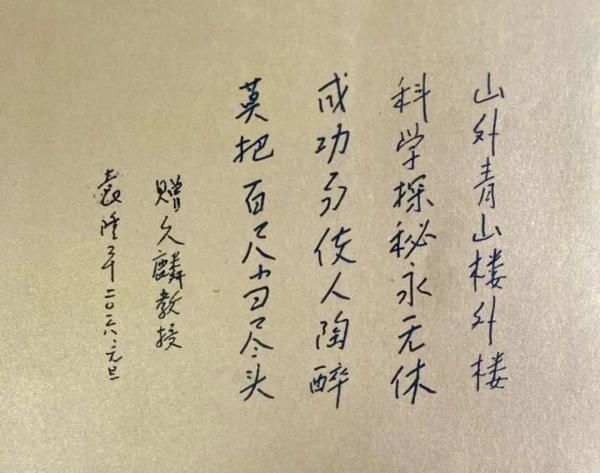 山外青山楼外楼
科学探秘永无休
成功易使人陶醉
莫把百尺当尽头
赠久麟教授
袁隆平二〇一六.元旦